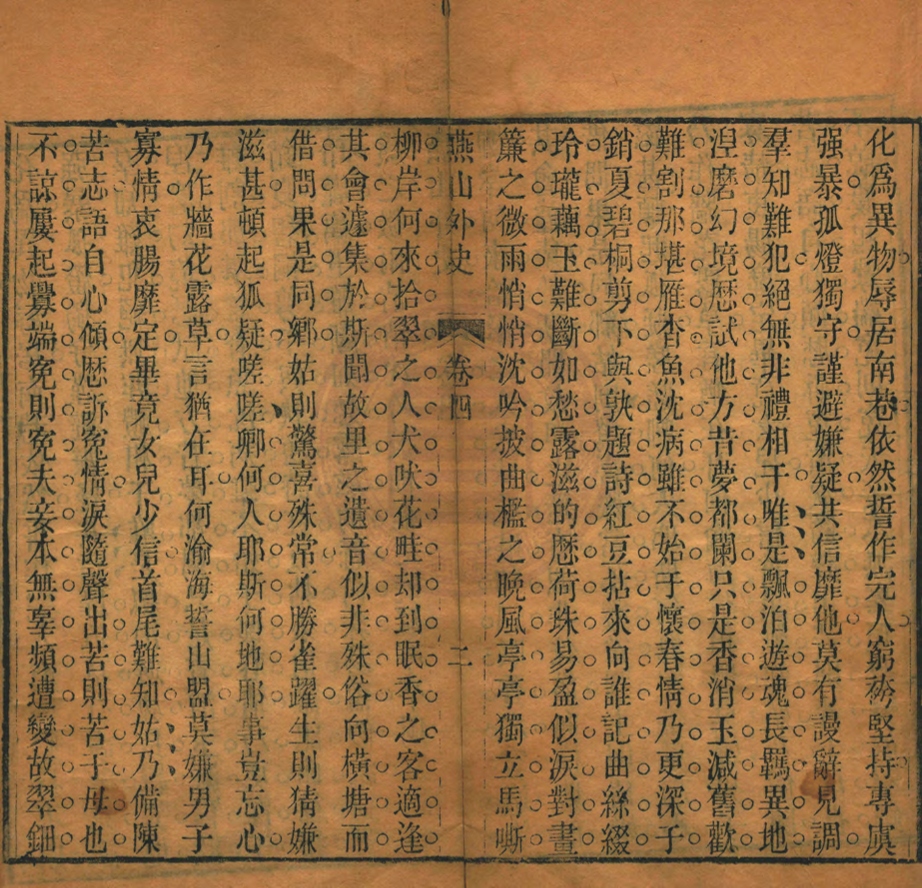 化爲異物辱居南巷依然誓作完人窮袴堅持專虞
强暴孤燈獨守謹避嫌疑共信靡他莫有謾辭見調
羣知難犯絕無非禮相干唯是飄泊遊魂長羈異地
湼磨幻境歴試他方昔夢都闌只是香消玉減舊歡
難割那堪雁杳魚沈病雖不始于懷春情乃更深于
銷夏碧桐剪下與孰題詩紅豆拈來向誰記曲絲綴
玲瓏藕玉難斷如愁露滋的歴荷珠易盈似淚對畫
簾之微雨悄悄沈吟披曲檻之晚風亭亭獨立馬嘶
燕山外史 卷四 二
柳岸何來拾翠之人犬吠花畦却到眠香之客適逢
其會遽集於斯聞故里之遺音似非殊俗向橫塘而
借問果是同鄉姑則驚喜殊常不勝雀躍生則猜嫌
滋甚頓起狐疑嗟嗟卿何人耶斯何地耶事豈忘心
乃作牆花露草言猶在耳何渝海誓山盟莫嫌男子
寡情衷腸靡定畢竟女兒少信首尾難知姑乃備陳
苦志語自心傾歴訴寃情淚隨聲出苦則苦于母也
不諒屢起釁端寃則寃夫妾本無辜頻遭變故翠鈿